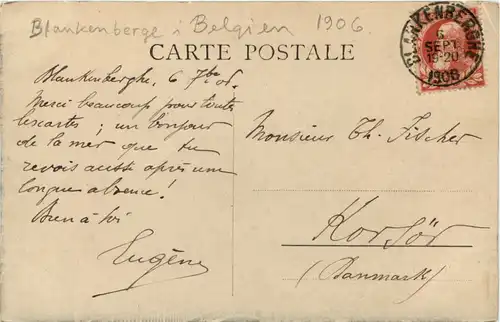 Blankenberge i Belgien 1906.
CARTE POSTALE
BLANKENBERGHE
6
SEPT
19-20
1906
Blankenberghe, 6 7bre 06.
Merci beaucoup pour toutes
les cartes ; un bonjour
de la mer que tu
revois aussi après une
longue absence !
Bien à toi
Eugène
Monsieur Th. Fischer
Korsör
(Danmark)